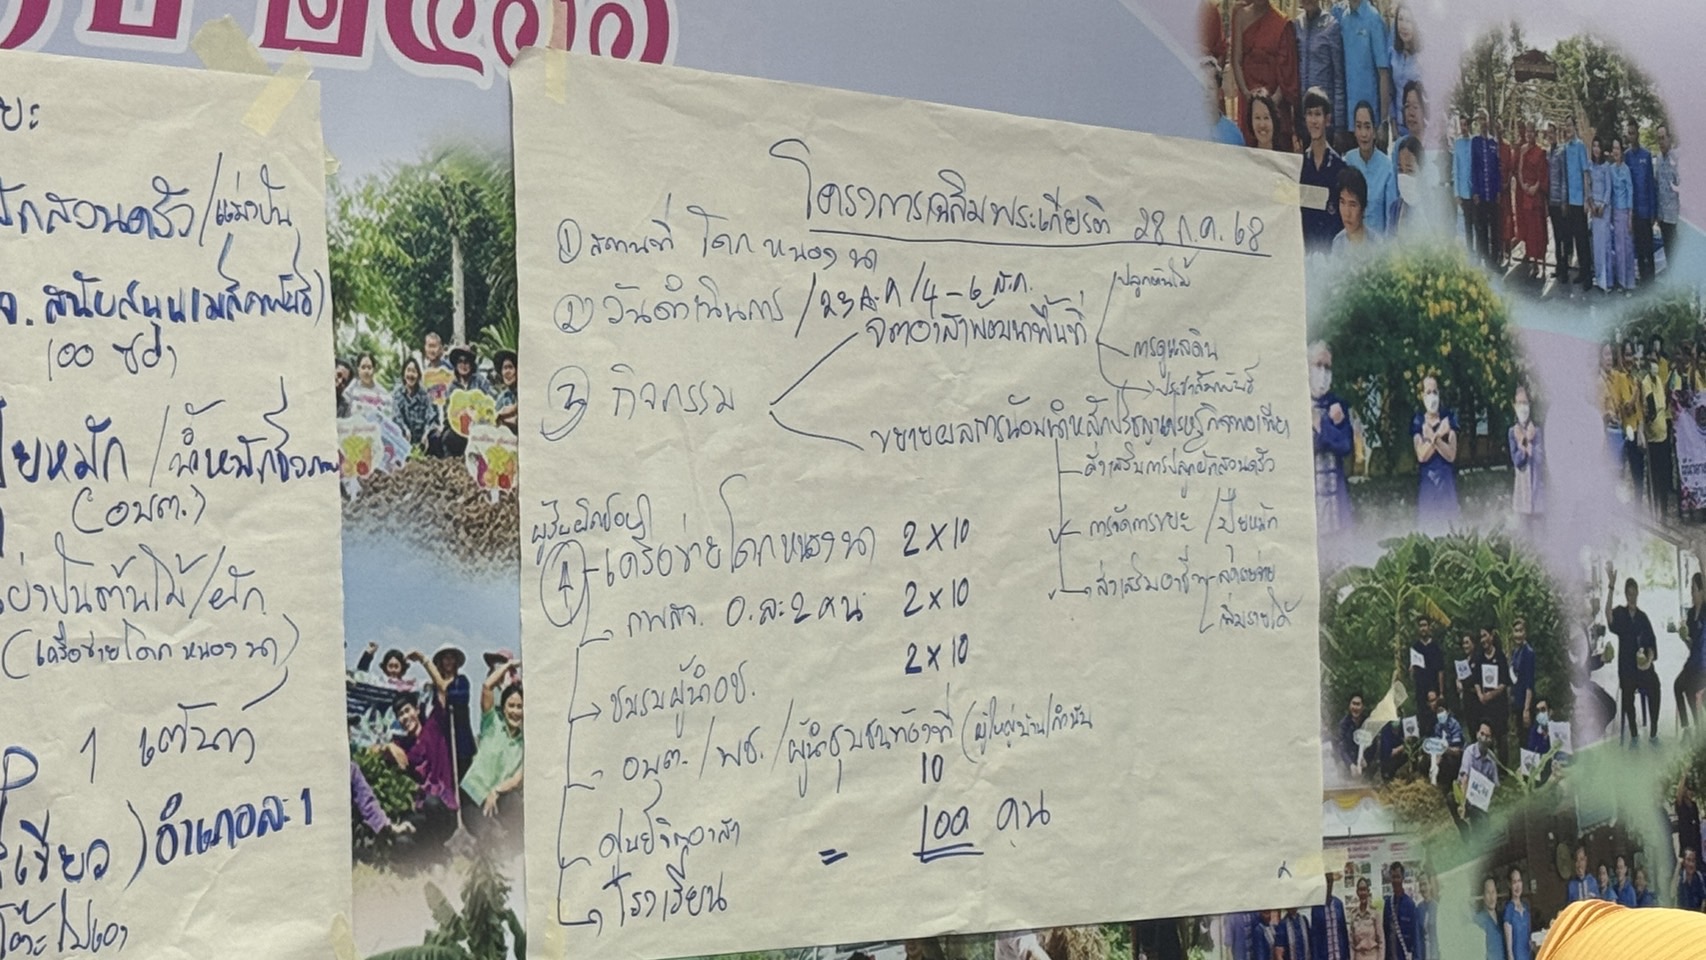 ๒๕๖๑
ยะ
ผักสวนครัว/แม่บ้าน
จ. สนับสนุนเมล็ดพันธุ์)
100 ซอง
ปุ๋ยหมัก / น้ำหมักชีวภาพ
(อบต.)
แบ่งปันต้นไม้/ผัก
(เครือข่ายโคก หนอง นา)
P 1 เต้นท์
เขียว) อำเภอละ 1
โต๊ะไปเอง
โครงการเฉลิมพระเกียรติ 28 ก.ค. 68
① สถานที่ โคก หนอง นา
② วันดำเนินการ / 23 ก.ค / 4-6 ส.ค.
③ กิจกรรม
จิตอาสาพัฒนาพื้นที่
ปลูกต้นไม้
การดูแลดิน
ประชาสัมพันธ์
ขยายผลการน้อมนำหลักปรัชญาเศรษฐกิจพอเพียง
ส่งเสริมการปลูกผักสวนครัว
การจัดการขยะ / ปุ๋ยหมัก
ส่งเสริมอาชีพ
ลดรายจ่าย
เพิ่มรายได้
ผู้รับผิดชอบ
④ เครือข่ายโคกหนองนา 2 x 10
กพสจ. อ.ละ 2 คน 2 x 10
ชมรมผู้นำอช. 2 x 10
อบต. / พช. / ผู้นำชุมชนท้องที่ (ผู้ใหญ่บ้าน/กำนัน
10
ศูนย์จิตอาสา
= 100 คน
โรงเรียน